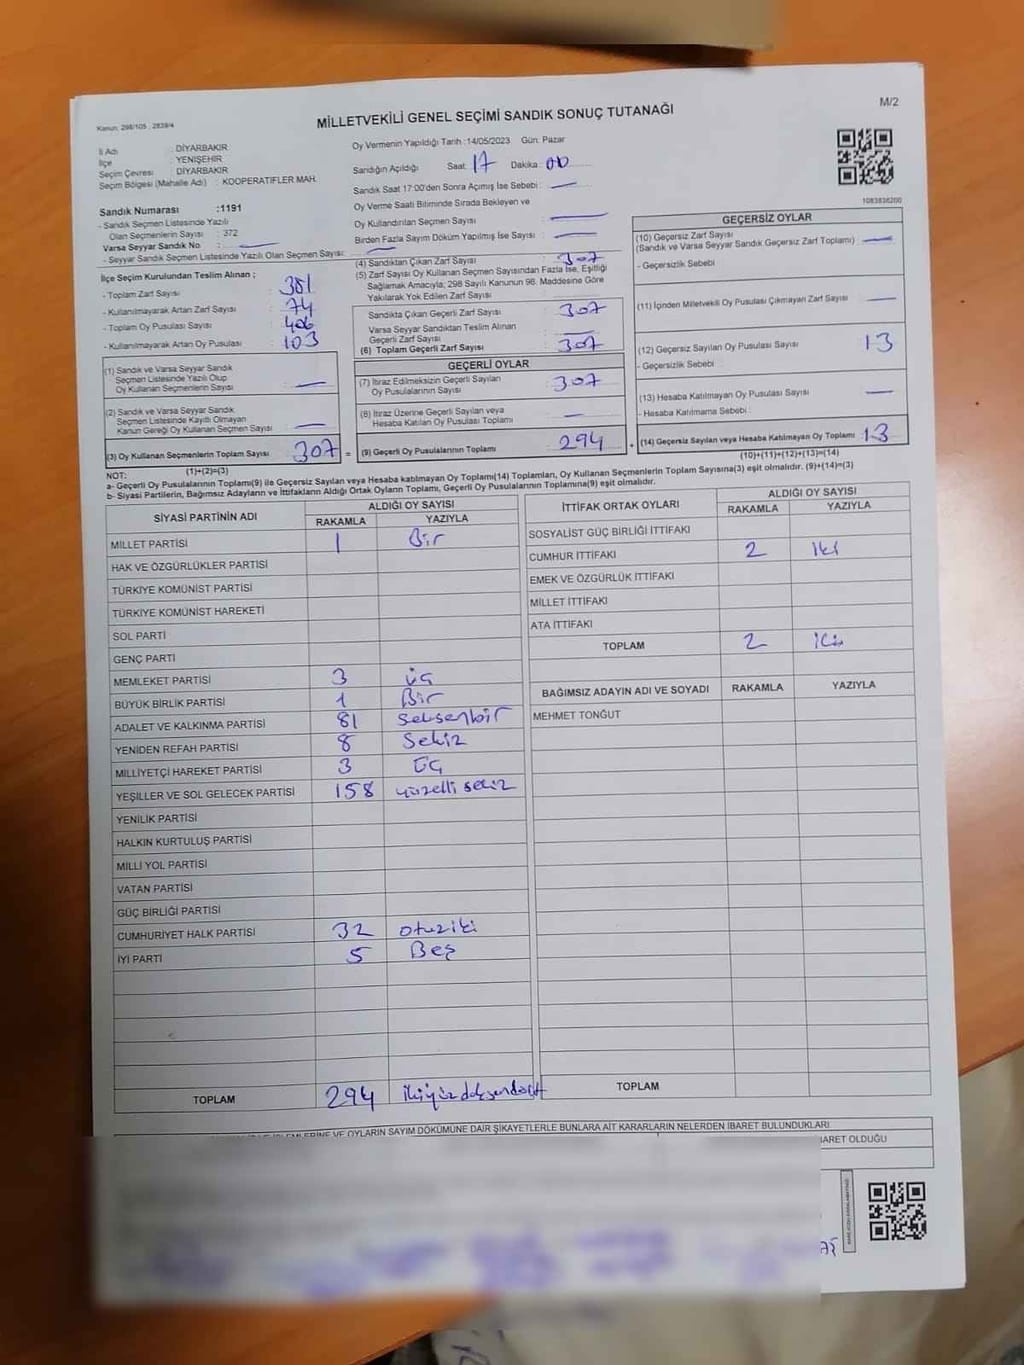 Kanun: 298/105 , 2839/4
MİLLETVEKİLİ GENEL SEÇİMİ SANDIK SONUÇ TUTANAĞI
M/2
İl Adı : DİYARBAKIR
İlçe : YENİŞEHİR
Seçim Çevresi : DİYARBAKIR
Seçim Bölgesi (Mahalle Adı) : KOOPERATİFLER MAH.
Oy Vermenin Yapıldığı Tarih :14/05/2023 Gün: Pazar
Sandığın Açıldığı Saat: 17 Dakika: 00
Sandık Saat 17:00'den Sonra Açımış İse Sebebi : —
Oy Verme Saati Bitiminde Sırada Bekleyen ve
Oy Kullandırılan Seçmen Sayısı : —
Birden Fazla Sayım Döküm Yapılmış İse Sayısı : —
1083836200
Sandık Numarası :1191
- Sandık Seçmen Listesinde Yazılı
Olan Seçmenlerin Sayısı : 372
Varsa Seyyar Sandık No : —
- Seyyar Sandık Seçmen Listesinde Yazılı Olan Seçmen Sayısı: —
İlçe Seçim Kurulundan Teslim Alınan ;
- Toplam Zarf Sayısı : 381
- Kullanılmayarak Artan Zarf Sayısı : 74
- Toplam Oy Pusulası Sayısı : 406
- Kullanılmayarak Artan Oy Pusulası : 103
(1) Sandık ve Varsa Seyyar Sandık
Seçmen Listesinde Yazılı Olup
Oy Kullanan Seçmenlerin Sayısı : —
(2) Sandık ve Varsa Seyyar Sandık
Seçmen Listesinde Kayıtlı Olmayan
Kanun Gereği Oy Kullanan Seçmen Sayısı : —
(3) Oy Kullanan Seçmenlerin Toplam Sayısı : 307 =
(1)+(2)=(3)
(4) Sandıktan Çıkan Zarf Sayısı : 307
(5) Zarf Sayısı Oy Kullanan Seçmen Sayısından Fazla İse, Eşitliği
Sağlamak Amacıyla; 298 Sayılı Kanunun 98. Maddesine Göre
Yakılarak Yok Edilen Zarf Sayısı : —
Sandıkta Çıkan Geçerli Zarf Sayısı : 307
Varsa Seyyar Sandıktan Teslim Alınan
Geçerli Zarf Sayısı : —
(6) Toplam Geçerli Zarf Sayısı : 307
GEÇERLİ OYLAR
(7) İtiraz Edilmeksizin Geçerli Sayılan
Oy Pusulalarının Sayısı : 307
(8) İtiraz Üzerine Geçerli Sayılan veya
Hesaba Katılan Oy Pusulası Toplamı : —
(9) Geçerli Oy Pusulalarının Toplamı : 294 +
GEÇERSİZ OYLAR
(10) Geçersiz Zarf Sayısı
(Sandık ve Varsa Seyyar Sandık Geçersiz Zarf Toplamı) : —
- Geçersizlik Sebebi :
(11) İçinden Milletvekili Oy Pusulası Çıkmayan Zarf Sayısı : —
(12) Geçersiz Sayılan Oy Pusulası Sayısı : 13
- Geçersizlik Sebebi :
(13) Hesaba Katılmayan Oy Pusulası Sayısı : —
- Hesaba Katılmama Sebebi :
(14) Geçersiz Sayılan veya Hesaba Katılmayan Oy Toplamı : 13
(10)+(11)+(12)+(13)=(14)
NOT:
a- Geçerli Oy Pusulalarının Toplamı(9) ile Geçersiz Sayılan veya Hesaba Katılmayan Oy Toplamı(14) Toplamları, Oy Kullanan Seçmenlerin Toplam Sayısına(3) eşit olmalıdır. (9)+(14)=(3)
b- Siyasi Partilerin, Bağımsız Adayların ve İttifakların Aldığı Ortak Oyların Toplamı, Geçerli Oy Pusulalarının Toplamına(9) eşit olmalıdır.
SİYASİ PARTİNİN ADI
ALDIĞI OY SAYISI
RAKAMLA YAZIYLA
MİLLET PARTİSİ 1 Bir
HAK VE ÖZGÜRLÜKLER PARTİSİ
TÜRKİYE KOMÜNİST PARTİSİ
TÜRKİYE KOMÜNİST HAREKETİ
SOL PARTİ
GENÇ PARTİ
MEMLEKET PARTİSİ 3 üç
BÜYÜK BİRLİK PARTİSİ 1 Bir
ADALET VE KALKINMA PARTİSİ 81 seksenbir
YENİDEN REFAH PARTİSİ 8 Sekiz
MİLLİYETÇİ HAREKET PARTİSİ 3 Üç
YEŞİLLER VE SOL GELECEK PARTİSİ 158 yüzelli sekiz
YENİLİK PARTİSİ
HALKIN KURTULUŞ PARTİSİ
MİLLİ YOL PARTİSİ
VATAN PARTİSİ
GÜÇ BİRLİĞİ PARTİSİ
CUMHURİYET HALK PARTİSİ 32 otuziki
İYİ PARTİ 5 Beş
TOPLAM 294 ikiyüz doksandört
İTTİFAK ORTAK OYLARI
ALDIĞI OY SAYISI
RAKAMLA YAZIYLA
SOSYALİST GÜÇ BİRLİĞİ İTTİFAKI
CUMHUR İTTİFAKI 2 İki
EMEK VE ÖZGÜRLÜK İTTİFAKI
MİLLET İTTİFAKI
ATA İTTİFAKI
TOPLAM 2 iki
BAĞIMSIZ ADAYIN ADI VE SOYADI RAKAMLA YAZIYLA
MEHMET TONĞUT
TOPLAM
İŞLEMLERİNE VE OYLARIN SAYIM DÖKÜMÜNE DAİR ŞİKAYETLERLE BUNLARA AİT KARARLARIN NELERDEN İBARET BULUNDUKLARI
BARET OLDUĞU